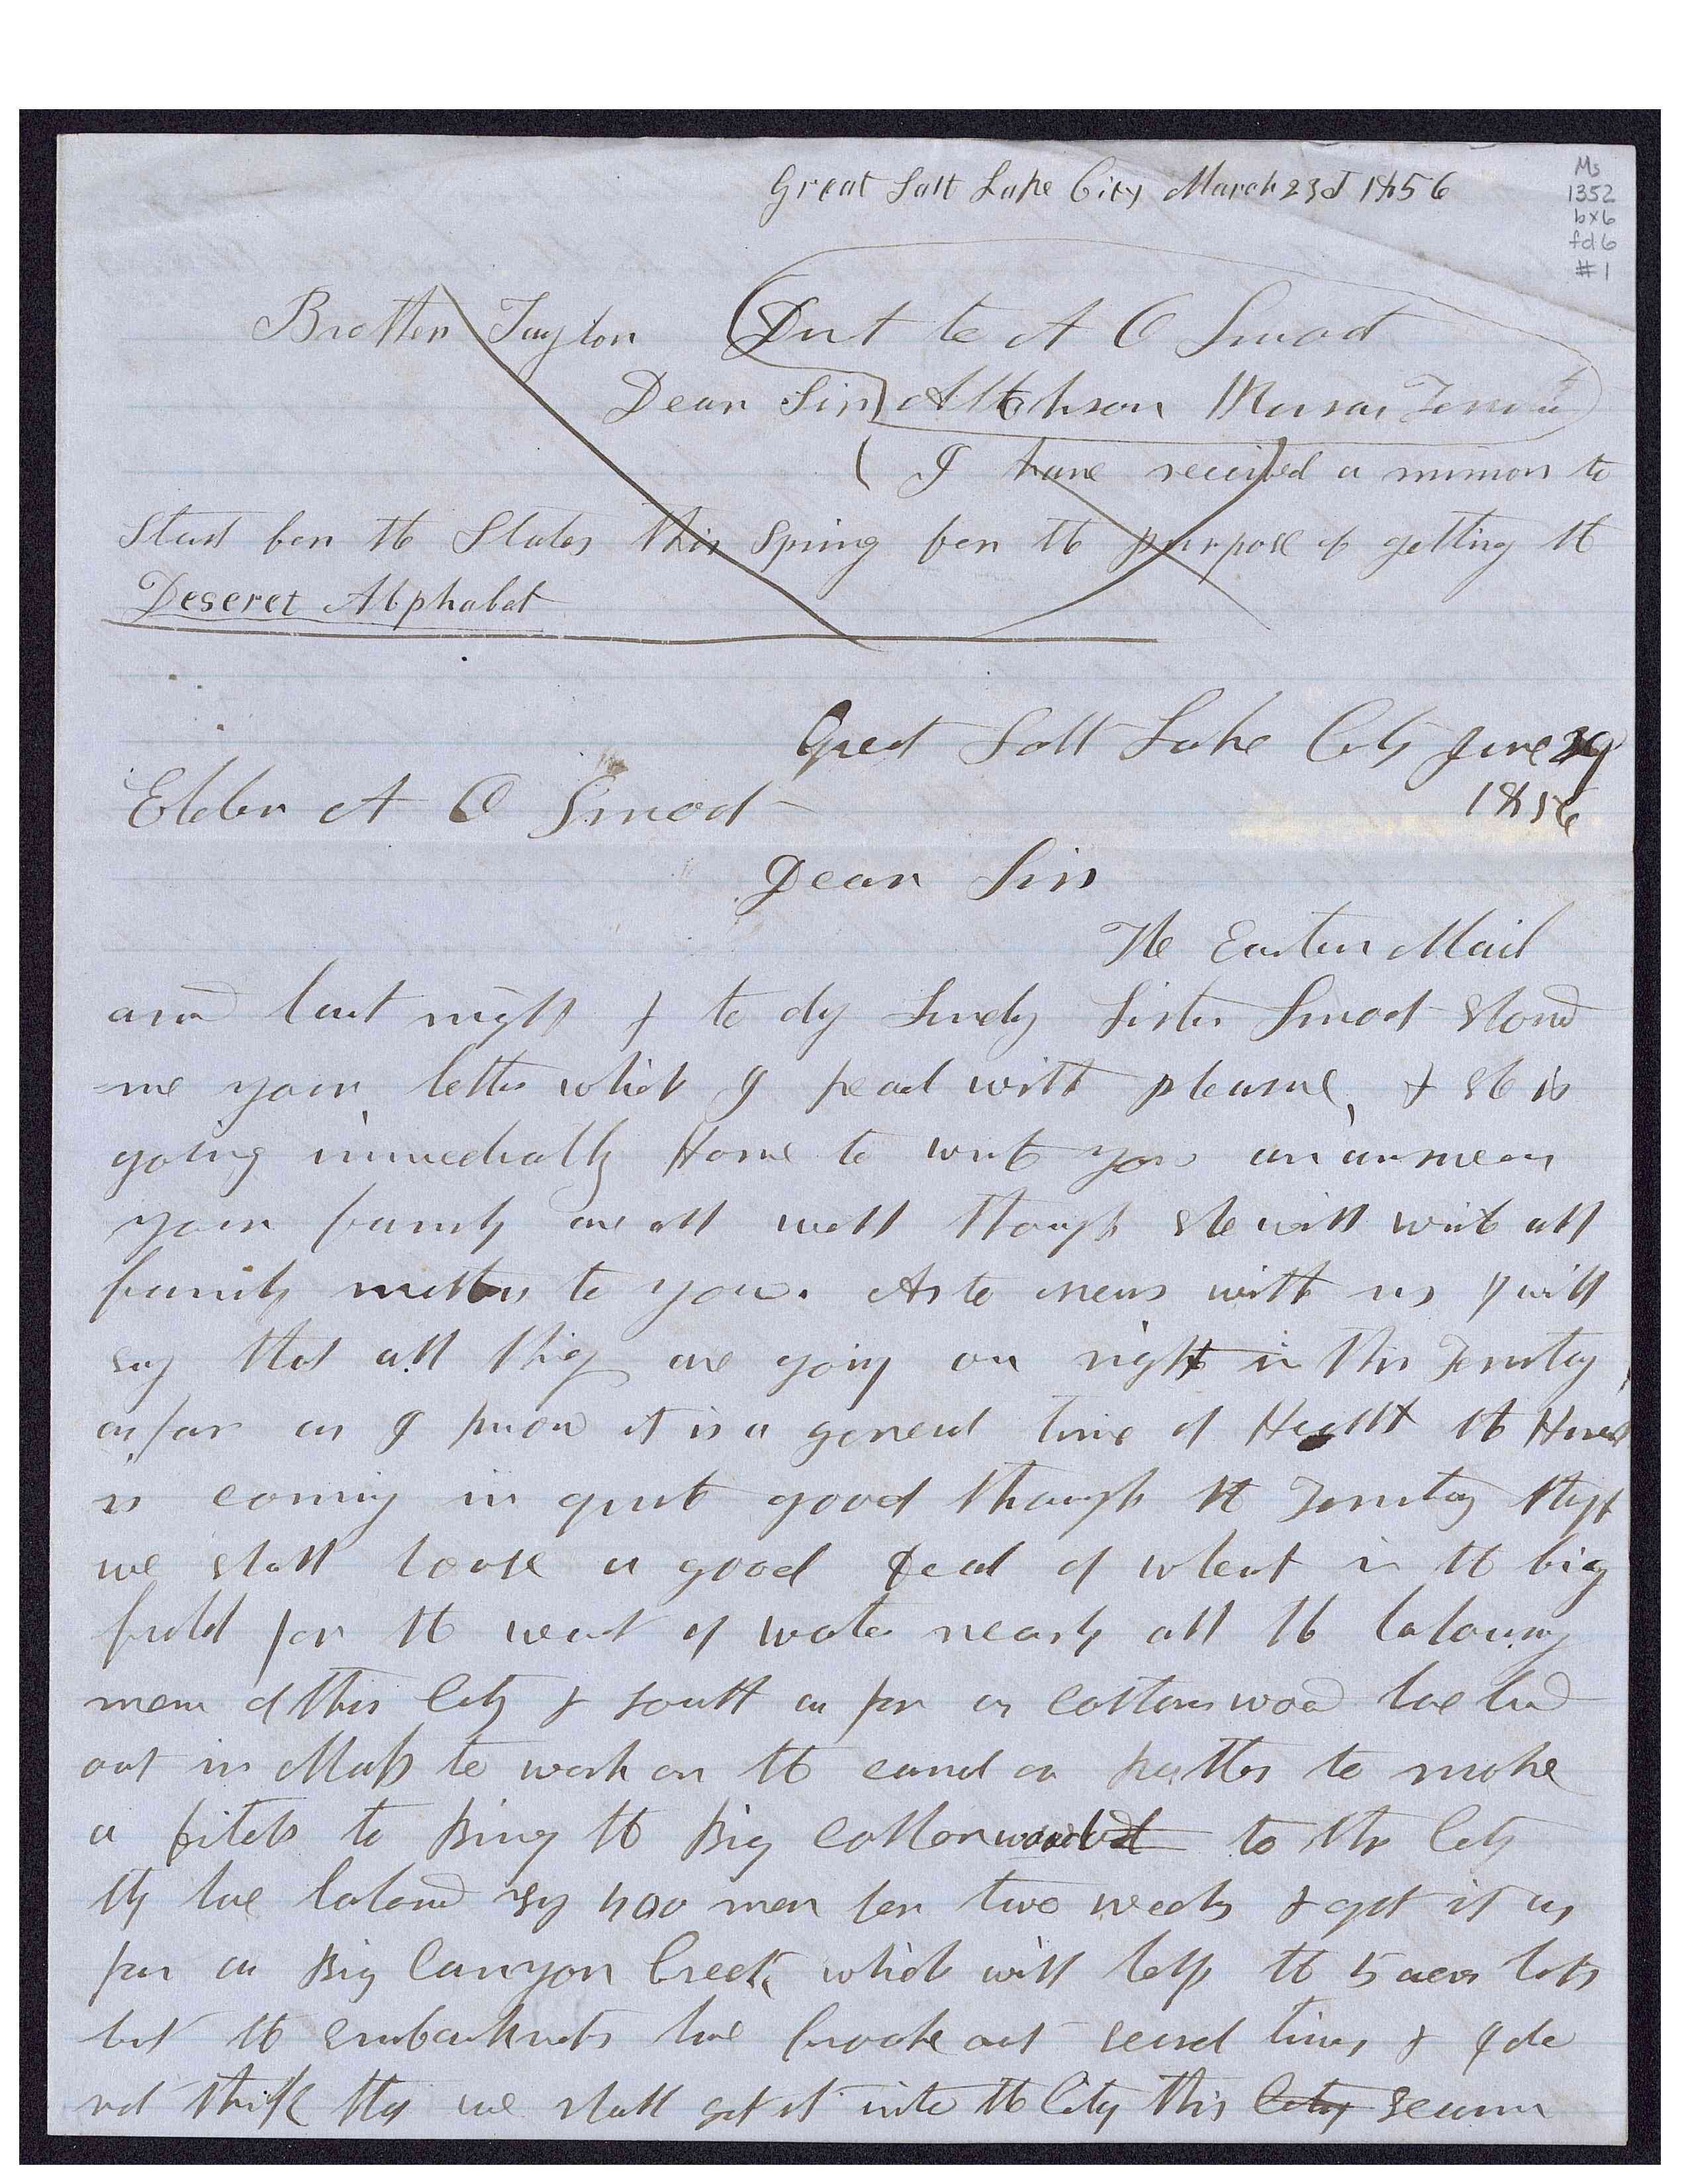 Great Salt Lake City March 23d 1856
Ms
1352
bx6
fd6
#1
Brother Taylor
Dear Sir
Dirt to A O Smoot
Atchson Territory
I have received a mission to
Start for the States this Spring for the purpose of getting the
Deseret Alphabet
Great Salt Lake City June 29
1856
Elder A O Smoot
Dear Sir
The Eastern Mail
arivd last night & to day Sundy Sister Smoot Showd
me your letter which I read with pleasure, & she is
going immediatly Home to write you an answer
your family are all well though she will write all
family matters to you. As to news with us I will
say that all things are going on right in this Territory
as far as I know it is a general time of Health the Harvest
is coming in quite good through the Territory though
we shall loose a good deal of wheat in the big
field for the want of water nearly all the labouring
men of this City & South as far as Cottonwood have turnd
out in Mass to work on the canal or rather to make
a ditch to bring the Big Cottonwood to the City
they have labord say 400 men for two weeks & got it as
far as Big Canyon Creek, which will help the 5 acre lots
but the embankments have broake out several times & I do
not think that we shall get it into the City this City season